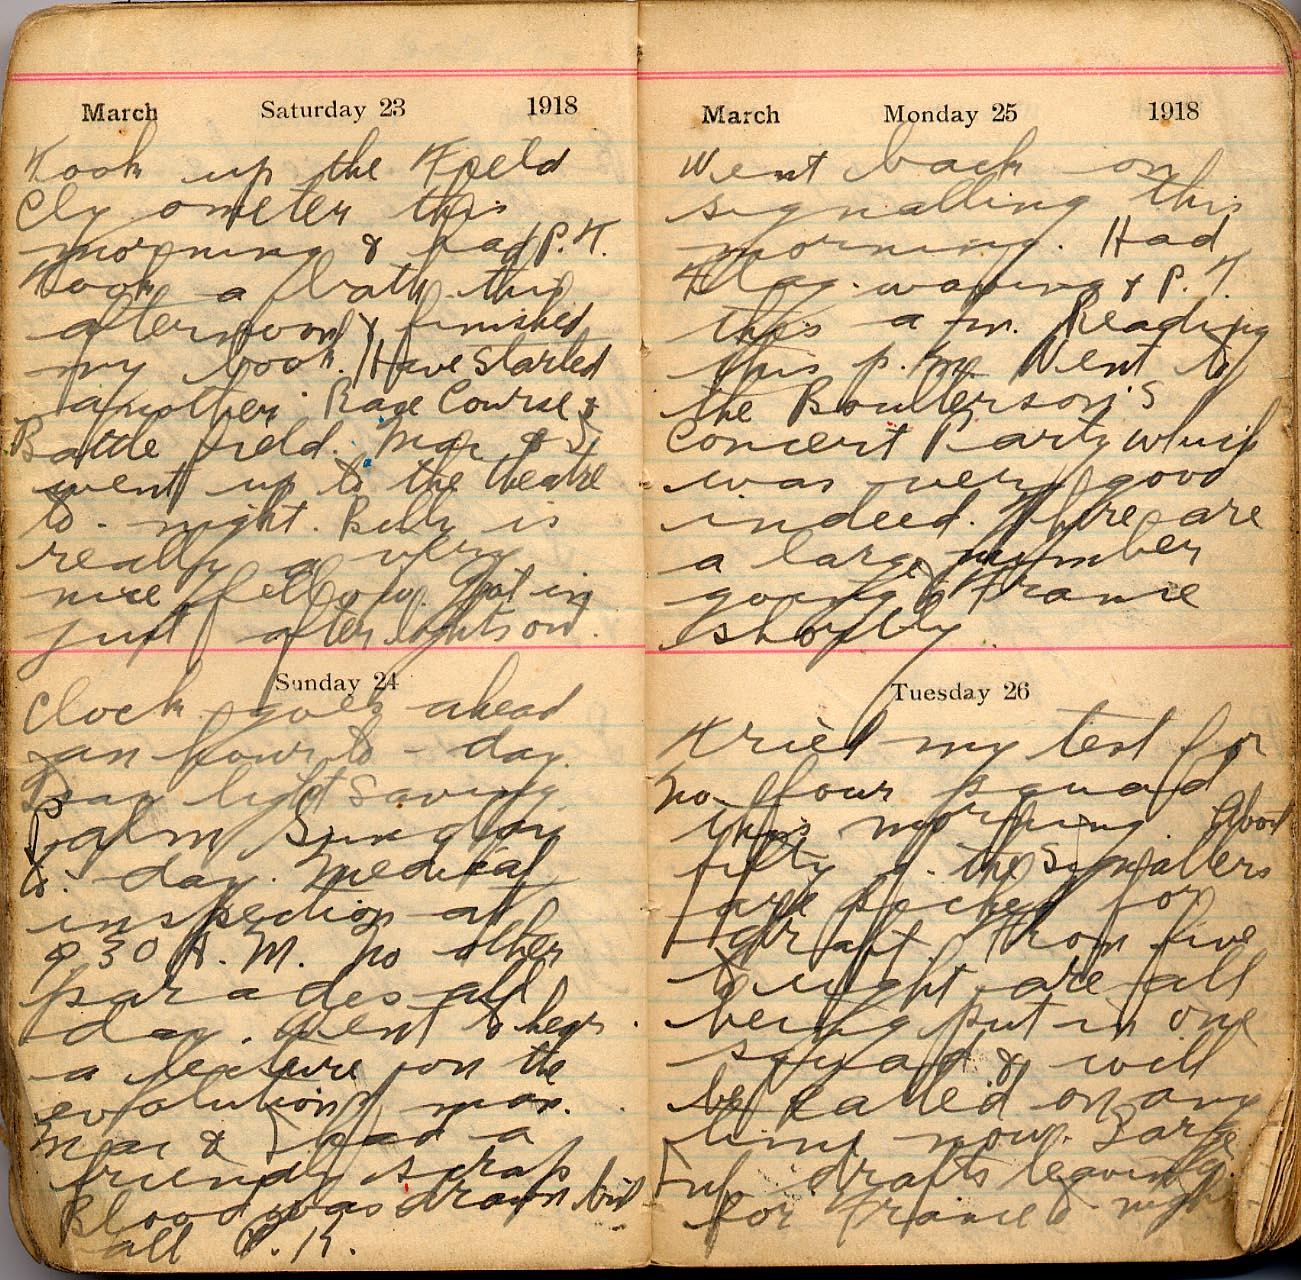 March Saturday 23 1918
Took up the Field
Cly ometer this
morning & had P.T.
Took a bath this
afternoon & finished
my book. Have started
another. Race Course &
Battle field. Mac & I
went up to the theatre
to-night. Billy is
really a very
nice fellow. Got in
just after lights out.
Sunday 24
Clock goes ahead
an hour to-day.
Day light saving.
Palm Sunday
to-day. Medical
inspection at
9.30 A.M. No other
parades all
day. Went to hear
a lecture on the
evolution man.
Mac & I had a
friendly scrap
Blood was drawn but
all O.K.
March Monday 25 1918
Went back on
signalling this
morning. Had
Flag-waving & P.T.
this a.m. Reading
this p.m. Went to
the Boulterson's
Concert Party which
was very good
indeed. There are
a large number
going to France
shortly
Tuesday 26
Tried my test for
No. four squad
this morning. About
fifty of the Signallers
are picked for
draft. From five
to eight are all
being put in one
squad & will
be called on any
time now. Large
drafts leaving
for France to-night.